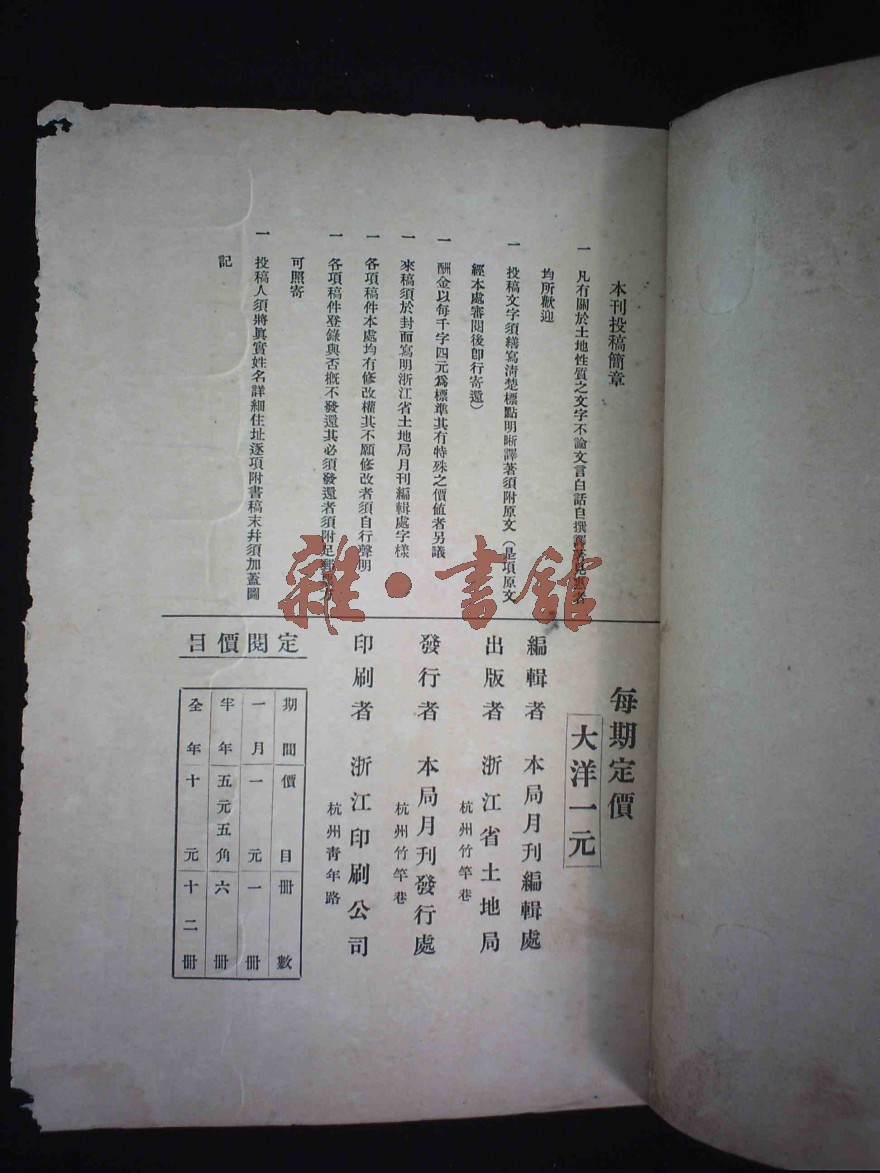 本刊投稿簡章
一 凡有關於土地性質之文字不論文言白話自撰
均所歡迎
一 投稿文字須繕寫清楚標點明晰譯著須附原文(是項原文
經本處審閱後卽行寄還)
一 酬金以每千字四元爲標準其有特殊之價値者另議
一 來稿須於封面寫明浙江省土地局月刊編輯處字樣
一 各項稿件本處均有修改權其不願修改者須自行聲明
一 各項稿件登錄與否槪不發還其必須發還者須附足郵
可照寄
一 投稿人須將眞實姓名詳細住址逐項附書稿末幷須加蓋圖
記
每期定價
大洋一元
編輯者 本局月刊編輯處
出版者 浙江省土地局
杭州竹竿巷
發行者 本局月刊發行處
杭州竹竿巷
印刷者 浙江印刷公司
杭州靑年路
定閱價目
期間 價目 冊數
一月 一元 一冊
半年 五元五角 六冊
全年 十元 十二冊
雜·書館